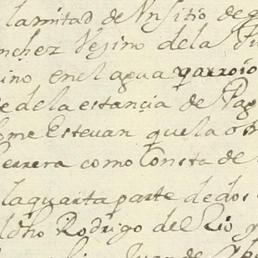 la mitad de Un sitio de g
nchez Vezino de la Vi
ino en el agua y arroio
e de la estancia de Pag
ome Estevan que la ot
errera como Consta de
la quarta parte de dos
dicho Rodrigo del Rio y
Juan de